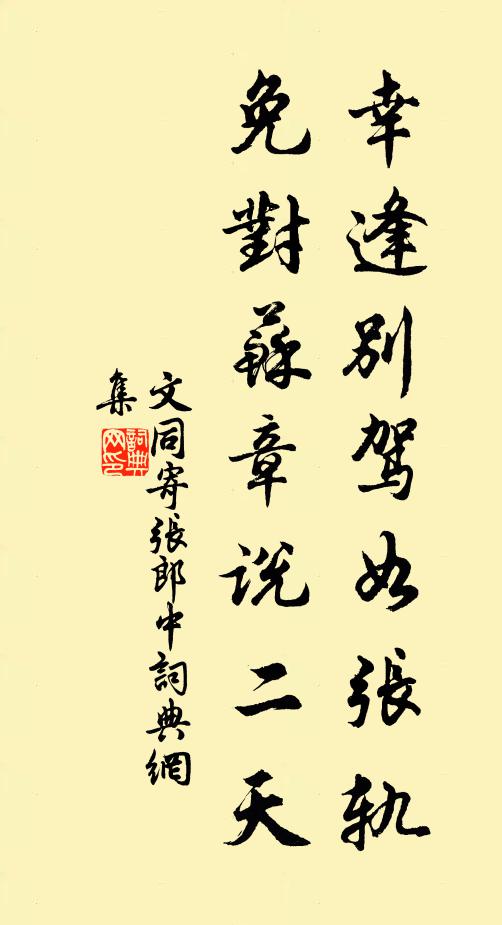 幸逢別駕如張軌
免對蘇章説二天
文同寄張郎中詞典網
集
詞典
网印